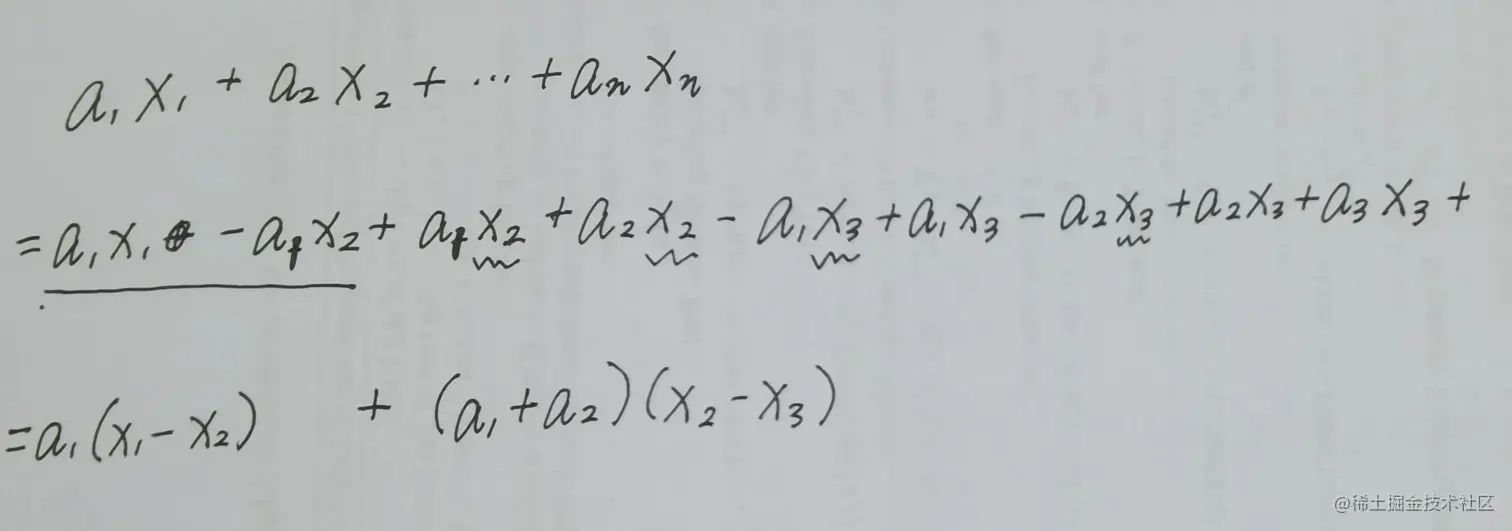 a₁x₁ + a₂x₂ + ··· + aₙxₙ
= a₁x₁ - a₁x₂ + a₁x₂ + a₂x₂ - a₁x₃ + a₁x₃ - a₂x₃ + a₂x₃ + a₃x₃ +
= a₁(x₁ - x₂) + (a₁ + a₂)(x₂ - x₃)
@稀土掘金技术社区